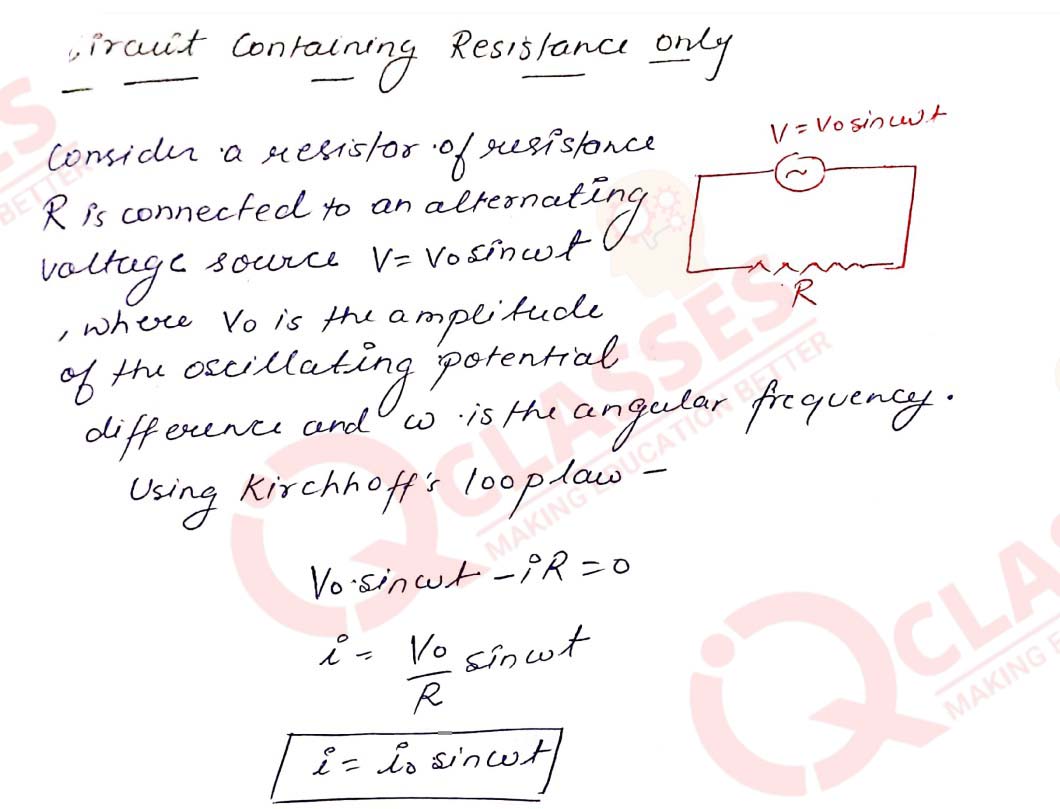 ircuit Containing Resistance only
V = Vo sin ωt
Consider a resistor of resistance
R is connected to an alternating
voltage source V = Vo sin ωt
, where Vo is the amplitude
of the oscillating potential
difference and ω is the angular frequency.
R
Using Kirchhoff's loop law –
Vo·sin ωt – iR = 0
i = Vo/R sin ωt
i = io sin ωt
S
BETTER
QCLASSES
MAKING EDUCATION BETTER
QCLA
MAKING E